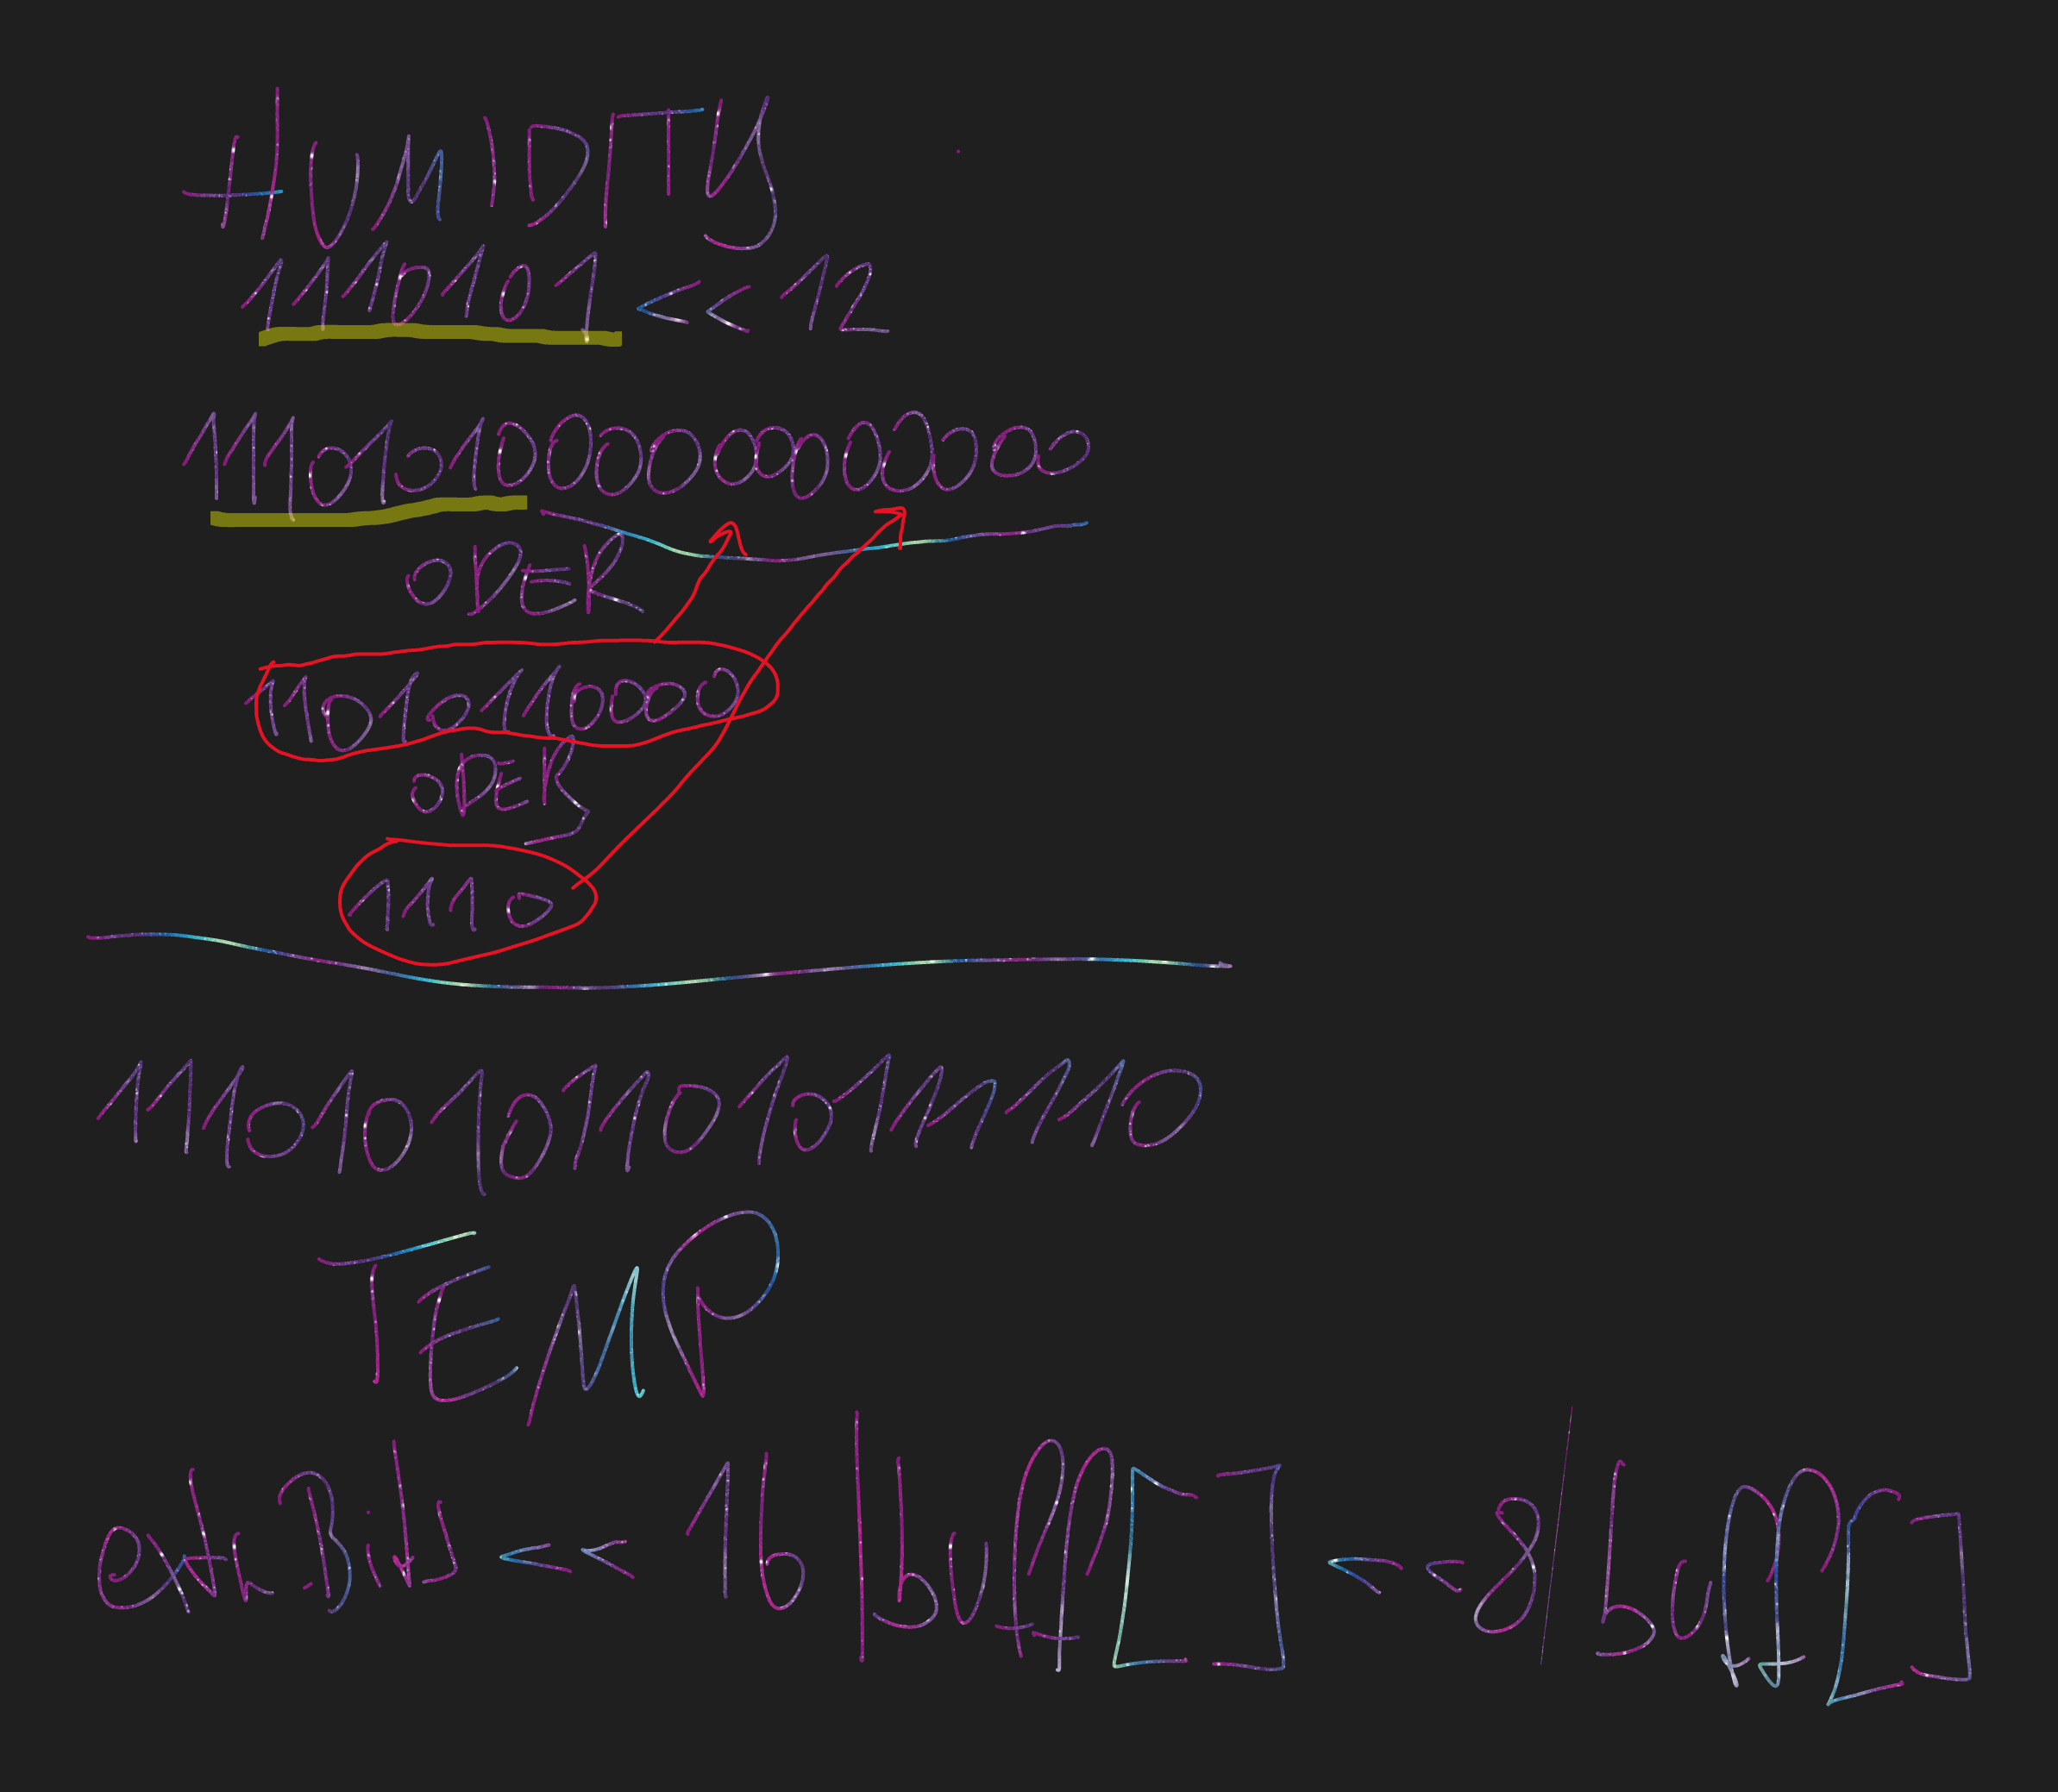 HUMIDITY
1110101 << 12
1110101000000000000
ODER
11010110000
ODER
1110
1110101011010111110
TEMP
extr.Bits << 16 | buff[] << 8 | buff[]